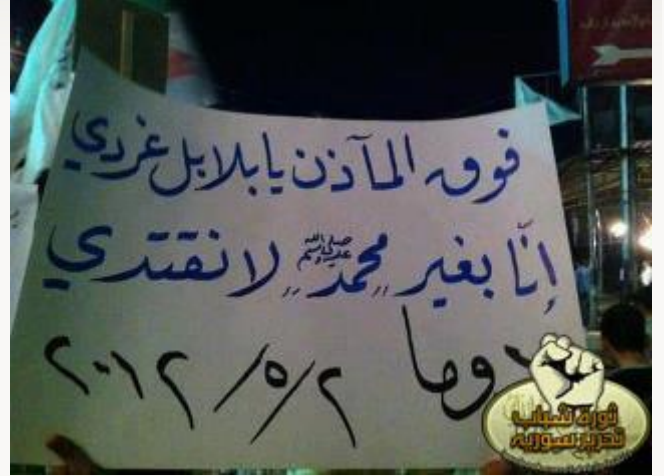 فوق المآذن يا بلابل غردي
إنّا بغير محمدٍ ﷺ لا نقتدي
دوما ٢/٥/٢٠١٢
ثورة شباب
تحرير سورية